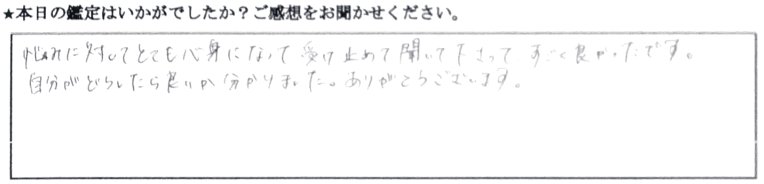 ★本日の鑑定はいかがでしたか？ご感想をお聞かせください。
悩みに対してとても心身になって受け止めて聞いて下さってすごく良かったです。
自分がどうしたら良いか分かりました。ありがとうございます。